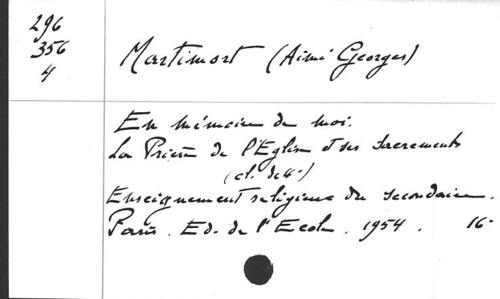 296
356
4
Martimort (Aimé Georges)
En mémoire de moi.
La Prière de l'Eglise et ses Sacrements
(cl. de 4e)
Enseignement religieux du secondaire.
Paris. Ed. de l'Ecole. 1954. 16°